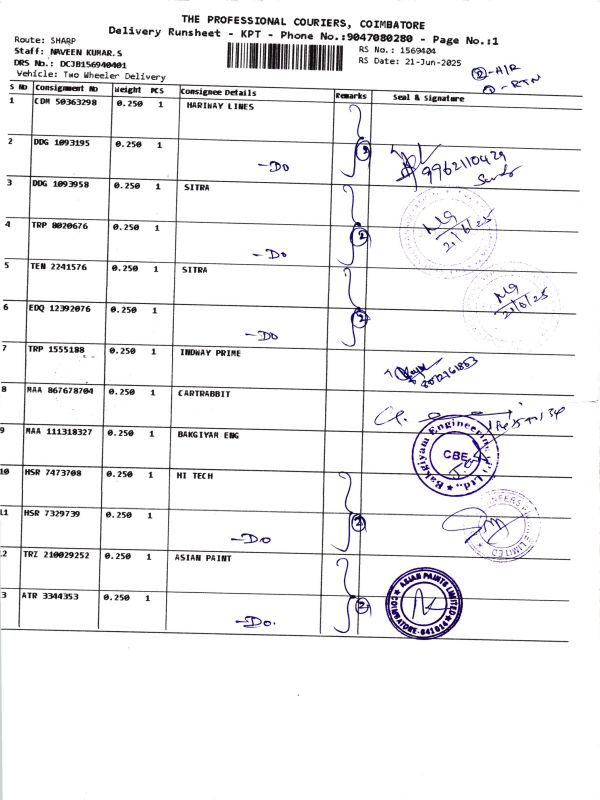 THE PROFESSIONAL COURIERS, COIMBATORE
Delivery Runsheet - KPT - Phone No.:9047080280 - Page No.:1
Route: SHARP
Staff: NAVEEN KUMAR.S
RS No.: 1569404
DRS No.: DCJB156940401
RS Date: 21-Jun-2025
Vehicle: Two Wheeler Delivery
② - AIR
① - RTN
S No Consignment No Weight PCS Consignee Details Remarks Seal & Signature
1 CDM 50363298 0.250 1 HARIWAY LINES
2 DDG 1093195 0.250 1 - Do ② 9962110429
3 DDG 1093958 0.250 1 SITRA
4 TRP 8020676 0.250 1 - Do ② 21/6/25
5 TEN 2241576 0.250 1 SITRA
21/6/25
6 EDQ 12392076 0.250 1 - Do ②
7 TRP 1555188 0.250 1 INDWAY PRIME
8 MAA 867678704 0.250 1 CARTRABBIT
9 MAA 111318327 0.250 1 BAKGIYAM ENG Bakgiyam Engineering CBE
10 HSR 7473708 0.250 1 HI TECH
11 HSR 7329739 0.250 1 - Do ②
12 TRZ 210029252 0.250 1 ASIAN PAINT
13 ATR 3344353 0.250 1 - Do. ② ASIAN PAINTS LIMITED COIMBATORE-641014